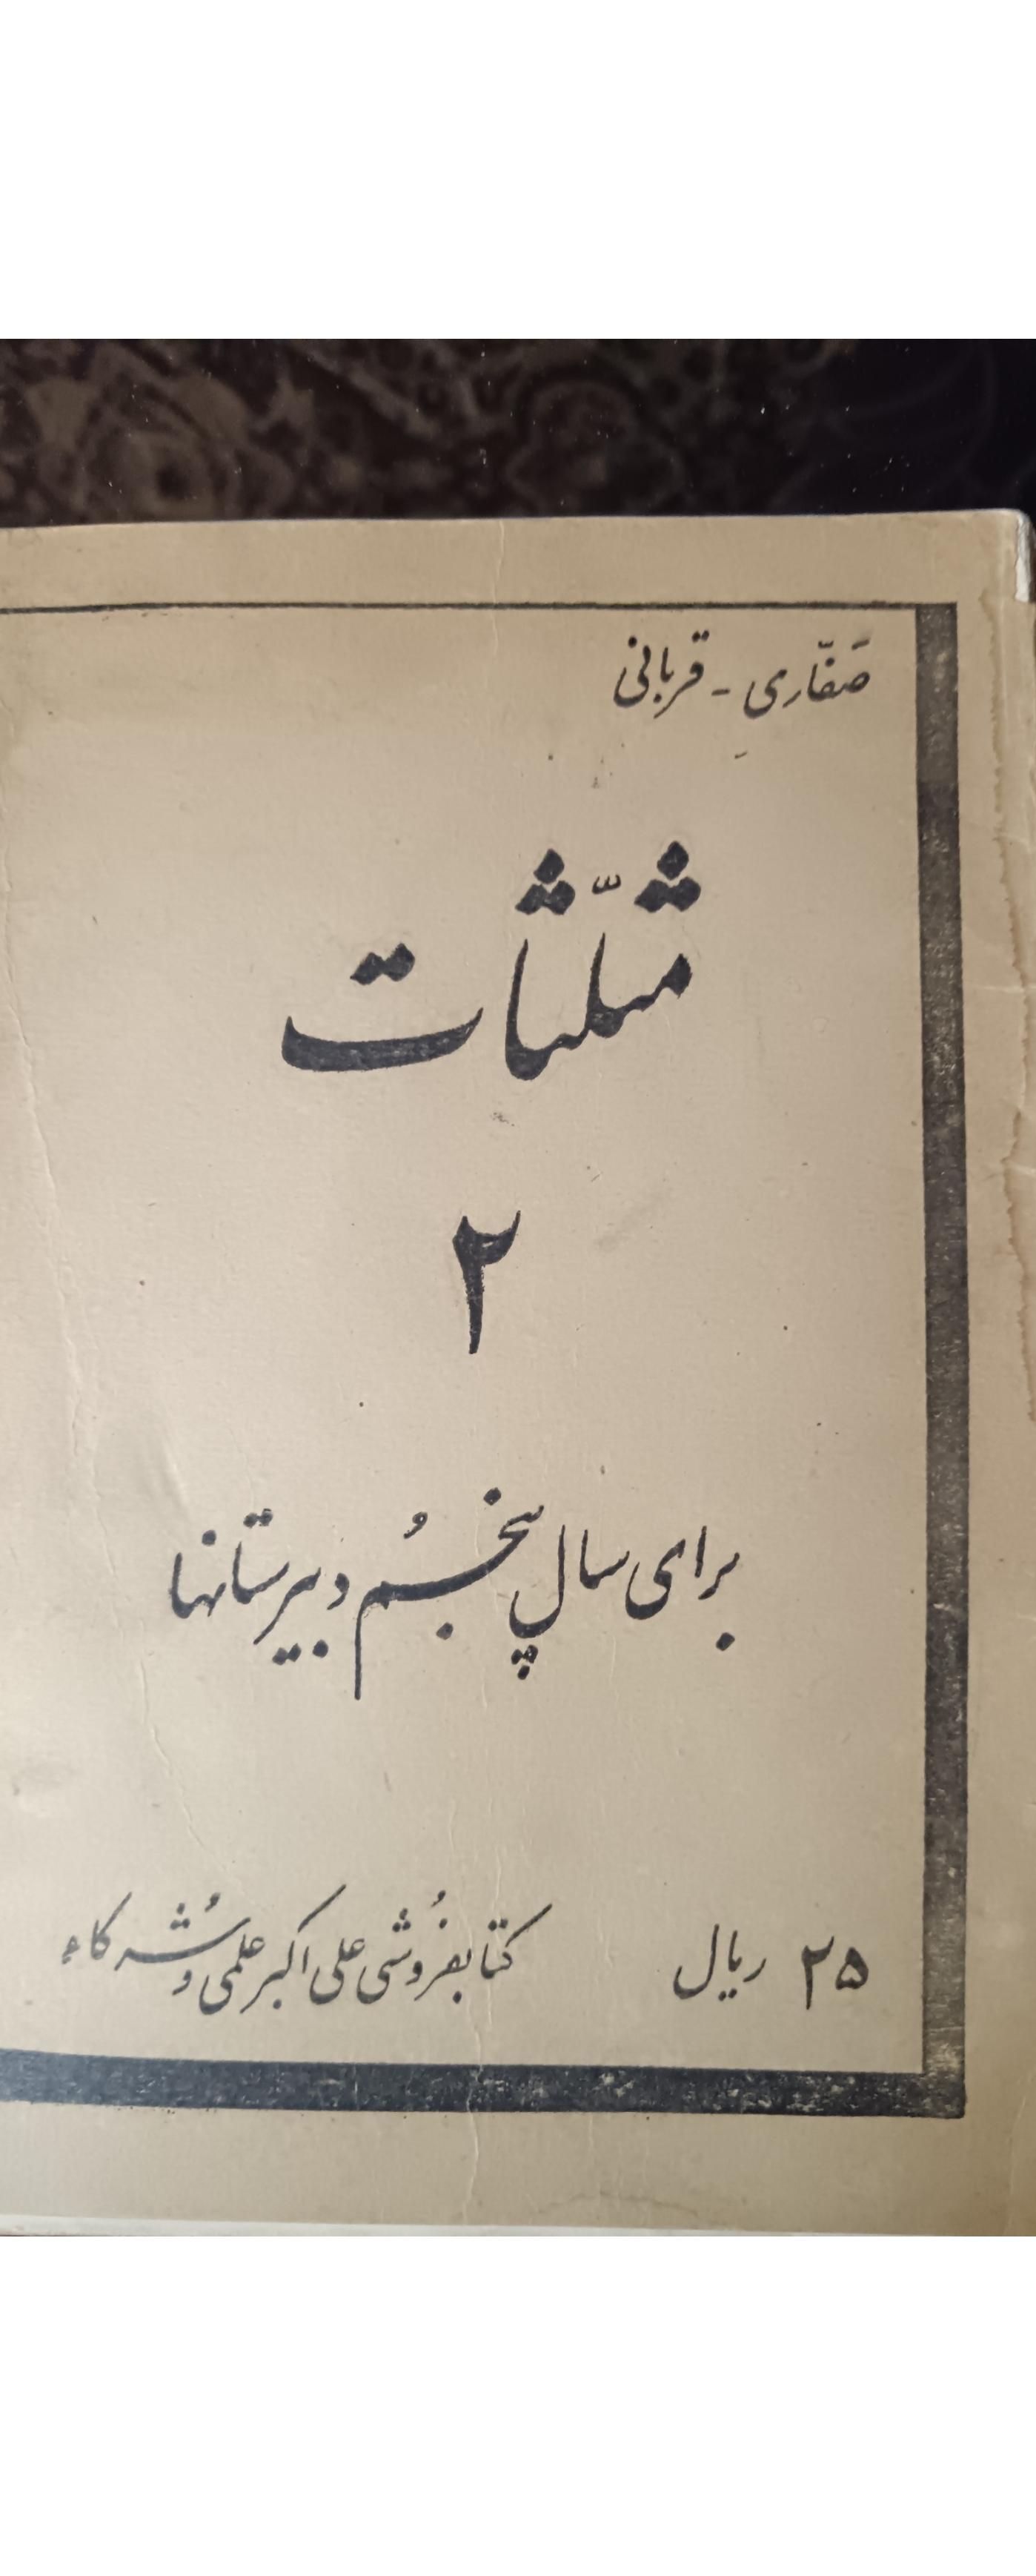 صَفّاری - قربانی
مثلّثات
۲
برای سال پنجُم دبیرستانها
۲۵ ریال کتابفرُوشی علی اکبر علمی وشُرکاء